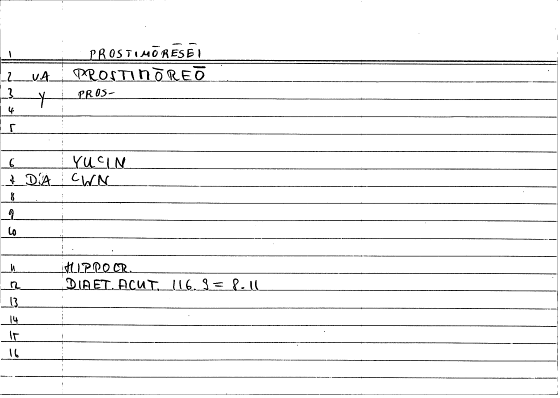 1 PROSTIMŌRĒSEI
2 VA PROSTIMŌREŌ
3 Y PROS-
4
5
6 YUCIN
7 DIA CWN
8
9
10
11 HIPPOCR.
12 DIAET. ACUT. 116.9 = 8.11
13
14
15
16